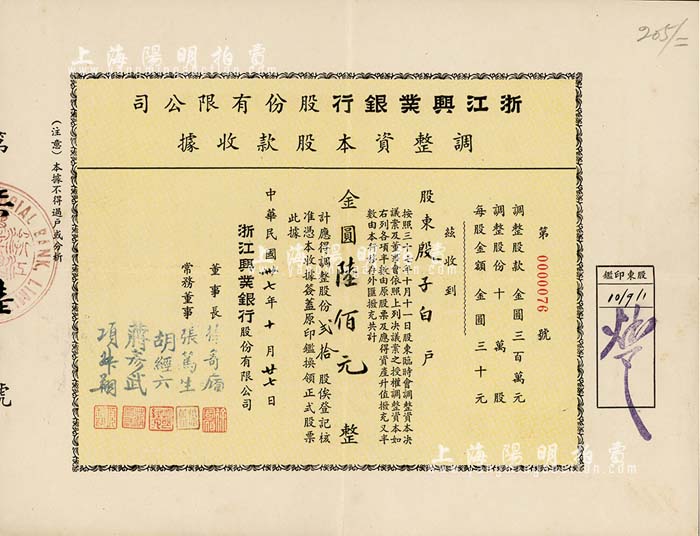 205/-
上海陽明拍賣
司公限有份股行銀業興江浙
據收款股本資整調
第 0000076 號
調整股款 金圓三百萬元
調整股份 十萬股
每股金額 金圓三十元
股東股子白戶
茲收到
按照三十七年十月十一日股東臨時會調整資本決
議案及董事會依照上列決議案之授權調整資本如
右列各項半數由原股票及應得資產升值撥充又半
數由本行所存外匯撥充共計
金圓陸佰元整
計應得調整股份貳拾股俟登記核
准憑本收據簽蓋原印鑑換領正式股票
此據
中華民國卅七年十月廿七日
浙江興業銀行股份有限公司
董事長
常務董事
張篤生
胡經六
蔣彥武
項叔翔
鑑印東股
10/9/1
(注意)本據不得過戶或分析
第
陸
號
CIAL BANK, LIMI
上海陽明拍賣
www.yangmingauction.com